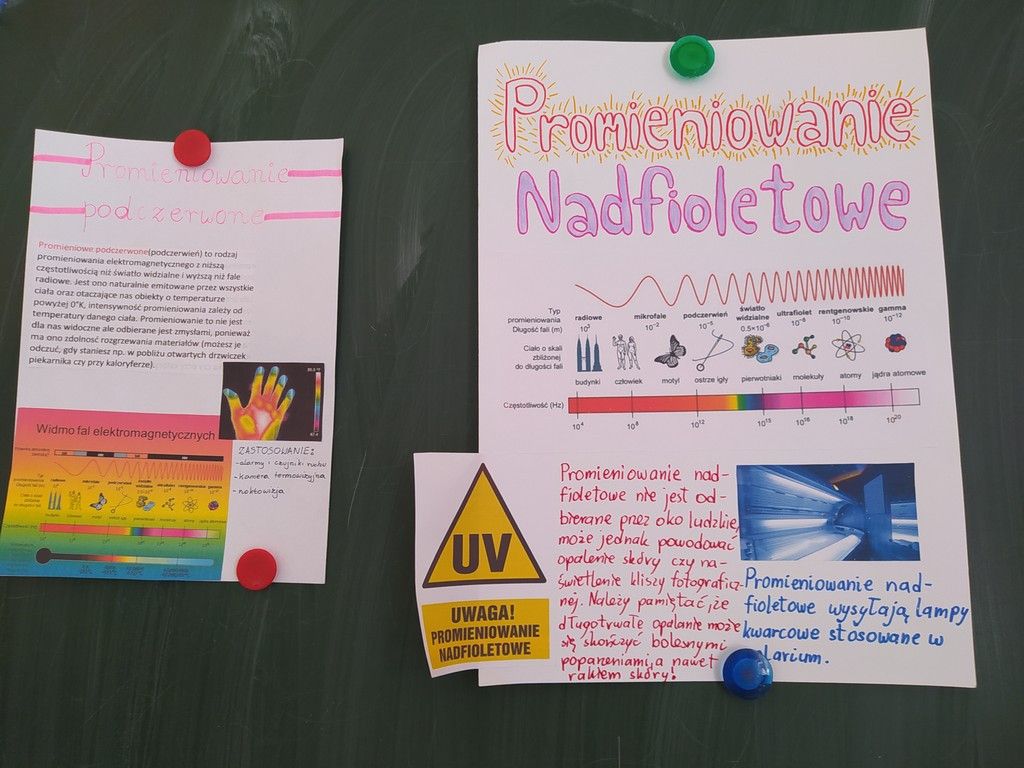 Promieniowanie
podczerwone
Promieniowe podczerwone(podczerwień) to rodzaj
promieniowania elektromagnetycznego z niższą
częstotliwością niż światło widzialne i wyższą niż fale
radiowe. Jest ono naturalnie emitowane przez wszystkie
ciała oraz otaczające nas obiekty o temperaturze
powyżej 0°K, intensywność promieniowania zależy od
temperatury danego ciała. Promieniowanie to nie jest
dla nas widoczne ale odbierane jest zmysłami, ponieważ
ma ono zdolność rozgrzewania materiałów (możesz je
odczuć, gdy staniesz np. w pobliżu otwartych drzwiczek
piekarnika czy przy kaloryferze).
Widmo fal elektromagnetycznych
ZASTOSOWANIE:
-alarmy i czujniki ruchu
-kamera termowizyjna
-noktowizja
Promieniowanie
Nadfioletowe
Typ promieniowania
Długość fali (m)
radiowe mikrofale podczerwień światło widzialne ultrafiolet rentgenowskie gamma
10³ 10⁻² 10⁻⁵ 0.5×10⁻⁶ 10⁻⁸ 10⁻¹⁰ 10⁻¹²
Ciało o skali
zbliżonej
do długości fali
budynki człowiek motyl ostrze igły pierwotniaki molekuły atomy jądra atomowe
Częstotliwość (Hz)
10⁴ 10⁸ 10¹² 10¹⁵ 10¹⁶ 10¹⁸ 10²⁰
UV
UWAGA!
PROMIENIOWANIE
NADFIOLETOWE
Promieniowanie nad-
fioletowe nie jest od-
bierane przez oko ludzkie,
może jednak powodować
opalenie skóry czy na-
świetlenie kliszy fotografic-
nej. Należy pamiętać, że
długotrwałe opalanie może
się skończyć bolesnymi
poparzeniami, a nawet
rakiem skóry!
Promieniowanie nad-
fioletowe wysyłają lampy
kwarcowe stosowane w
larium.